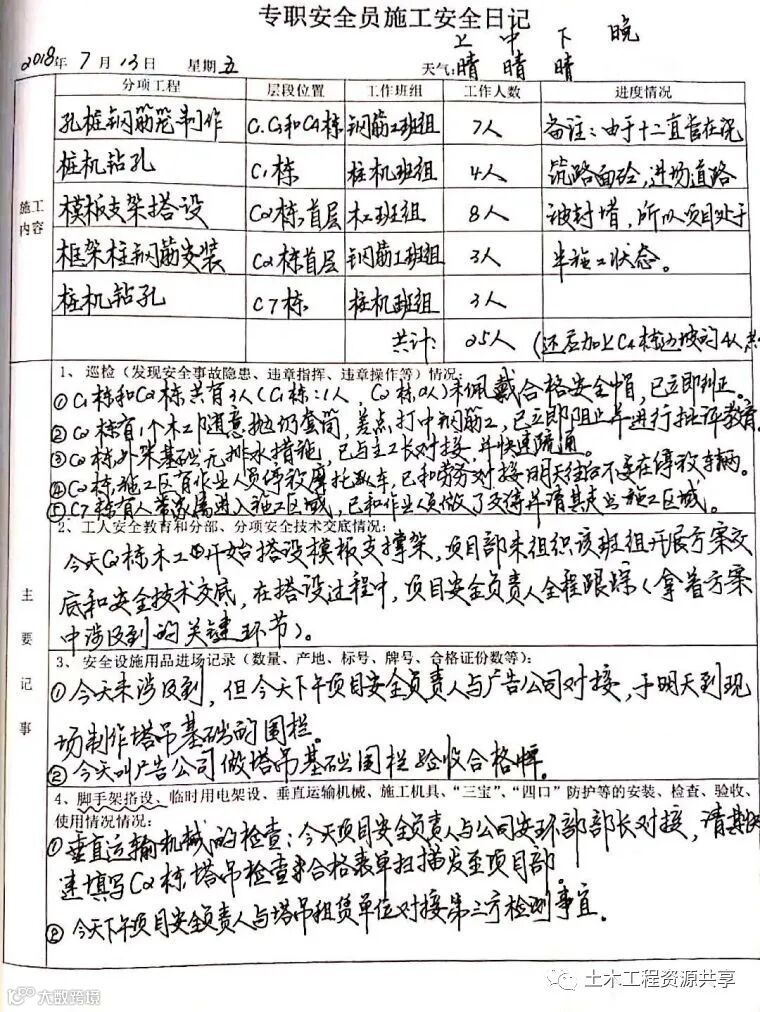 专职安全员施工安全日记
上 中 下 晚
2018年 7 月 13日 星期五 天气:晴 晴 晴
分项工程 层段位置 工作班组 工作人数 进度情况
孔桩钢筋笼制作 C1.C3和C4栋 钢筋工班组 7人 备注:由于十二直管在浇
桩机钻孔 C1栋 桩机班组 4人 筑路面砼,进场道路
施工内容 模板支架搭设 C2栋,首层 木工班组 8人 被封堵,所以项目处于
框架柱钢筋安装 C2栋首层 钢筋工班组 3人 半施工状态。
桩机钻孔 C7栋 桩机班组 3人
共计: 25人 (还应加上C4栋边坡的4人
主要记事
1、巡检(发现安全事故隐患、违章指挥、违章操作等)情况:
① C1栋和C2栋共有3人(C1栋:1人, C2栋2人)未佩戴合格安全帽,已立即纠正。
② C2栋有1个木工随意抛扔套筒,差点打中钢筋工,已立即阻止并进行批评教育。
③ C2栋外架基础无排水措施,已与主工长对接,并快速疏通。
④ C2栋施工区有作业人员停放摩托车,已和劳务对接明天往后不要在停放车辆。
⑤ C7栋有人带家属进入施工区域,已和作业人员做了交待并请其走出施工区域。
2、工人安全教育和分部、分项安全技术交底情况:
今天C2栋木工开始搭设模板支撑架,项目部未组织该班组开展方案交
底和安全技术交底,在搭设过程中,项目安全负责人全程跟踪(拿着方案
中涉及到的关键环节)。
3、安全设施用品进场记录(数量、产地、标号、牌号、合格证份数等):
① 今天未涉及到,但今天下午项目安全负责人与广告公司对接,于明天到现
场制作塔吊基础的围栏。
② 今天叫广告公司做塔吊基础围栏验收合格牌。
4、脚手架搭设、临时用电架设、垂直运输机械、施工机具、“三宝”、“四口”防护等的安装、检查、验收、
使用情况情况:
① 垂直运输机械的检查:今天项目安全负责人与公司安环部部长对接,请其快
速填写C2栋塔吊检查合格表单扫描发至项目部。
② 今天下午项目安全负责人与塔吊租赁单位对接第三方检测事宜.
土木工程资源共享
大数跨境